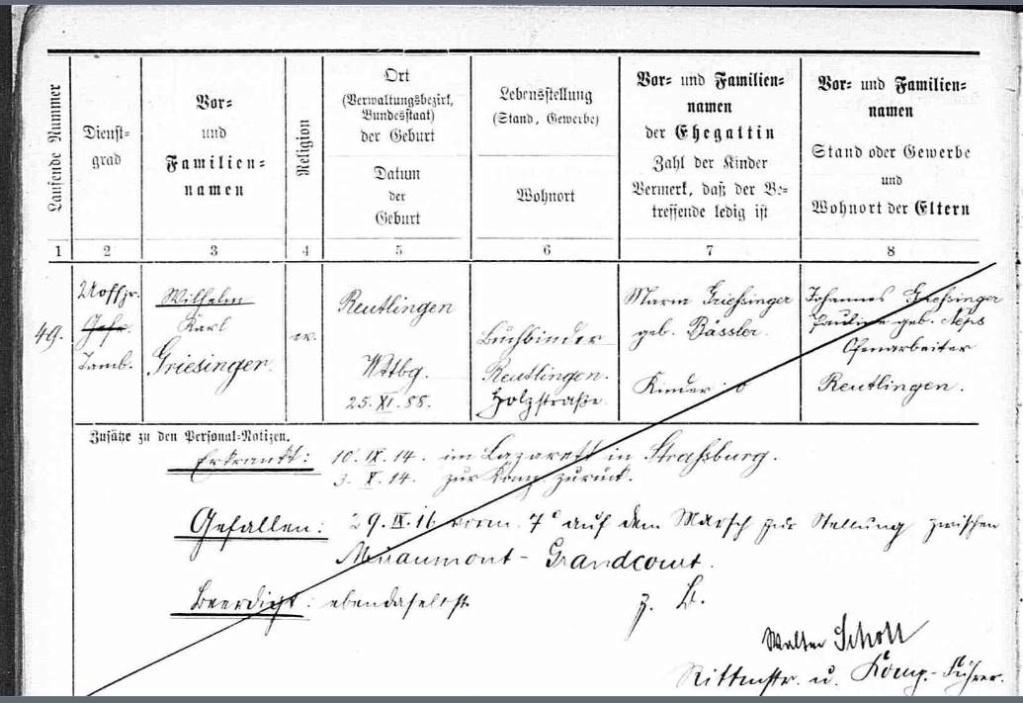 Laufende Nummer
Dienst-
grad
Vor-
und
Familien-
namen
Religion
Ort
(Verwaltungsbezirk,
Bundesstaat)
der Geburt
Datum
der
Geburt
Lebensstellung
(Stand, Gewerbe)
Wohnort
Vor- und Familien-
namen
der Ehegattin
Zahl der Kinder
Vermerk, daß der Be-
treffende ledig ist
Vor- und Familien-
namen
Stand oder Gewerbe
und
Wohnort der Eltern
1 2 3 4 5 6 7 8
49.
Gefr.
Tamb.
Wilhelm
Karl
Griesinger
ev.
Reutlingen
Wttbg.
25. XI. 88.
Buchbinder
Reutlingen.
Holzstraße
Maria Grießinger
geb. Bässler.
Kinder: 0
Johannes Grießinger
Pauline geb.
Reutlingen.
Zusätze zu den Personal-Notizen.
Erkrankt: 10. IX. 14. im Lazarett in Straßburg.
3. X. 14. zur Komp. zurück.
Gefallen: 29. IX. 16 vorm. 7 auf dem Marsch zur Stellung zwischen
Miraumont - Grandcourt.
Beerdigt: ebendaselbst
z. B.
Walter Schott
Rittmstr. u. Komp.-Führer.